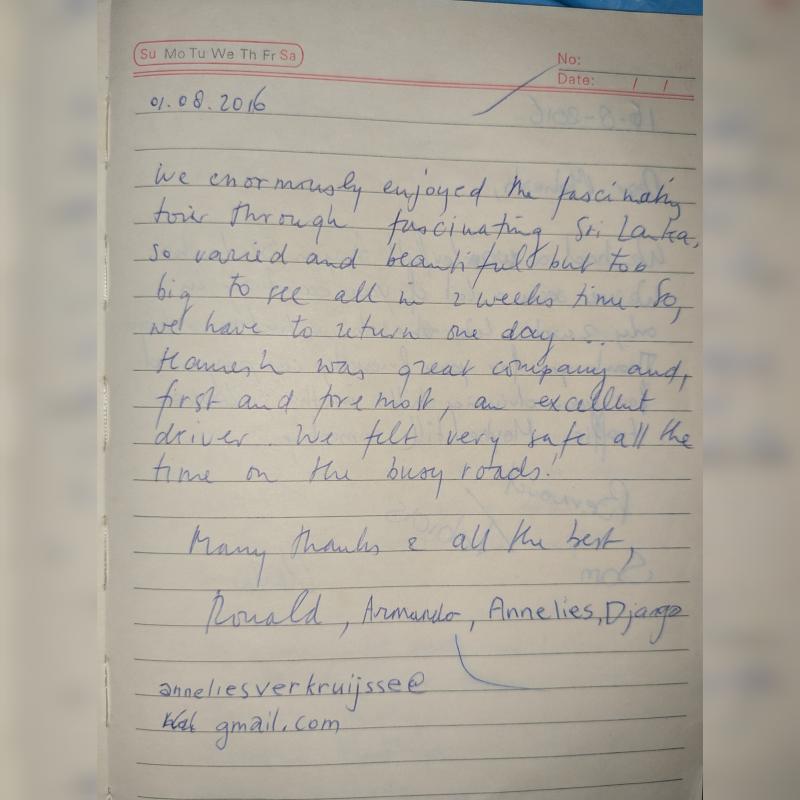 Su Mo Tu We Th Fr Sa
No:
Date: / /
01.08.2016
We enormously enjoyed the fascinating
tour through fascinating Sri Lanka,
so varied and beautiful but too
big to see all in 2 weeks time. So,
we have to return one day...
Hamesh was great company and,
first and foremost, an excellent
driver. We felt very safe all the
time on the busy roads!
Many thanks & all the best,
Ronald, Armando, Annelies, Django
anneliesverkruijsse@
gmail.com